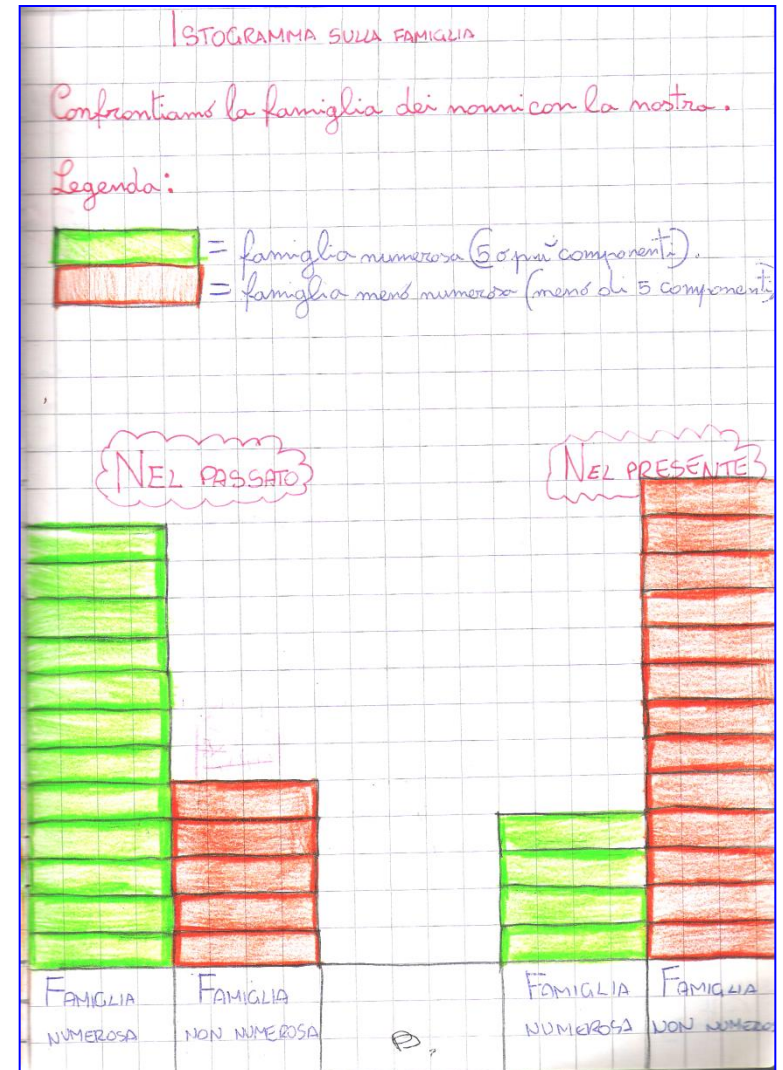 ISTOGRAMMA SULLA FAMIGLIA
Confrontiamo la famiglia dei nonni con la nostra.
Legenda:
= famiglia numerosa (5 o più componenti).
= famiglia meno numerosa (meno di 5 componenti
NEL PASSATO
NEL PRESENTE
FAMIGLIA NUMEROSA
FAMIGLIA NON NUMEROSA
FAMIGLIA NUMEROSA
FAMIGLIA NON NUMERO